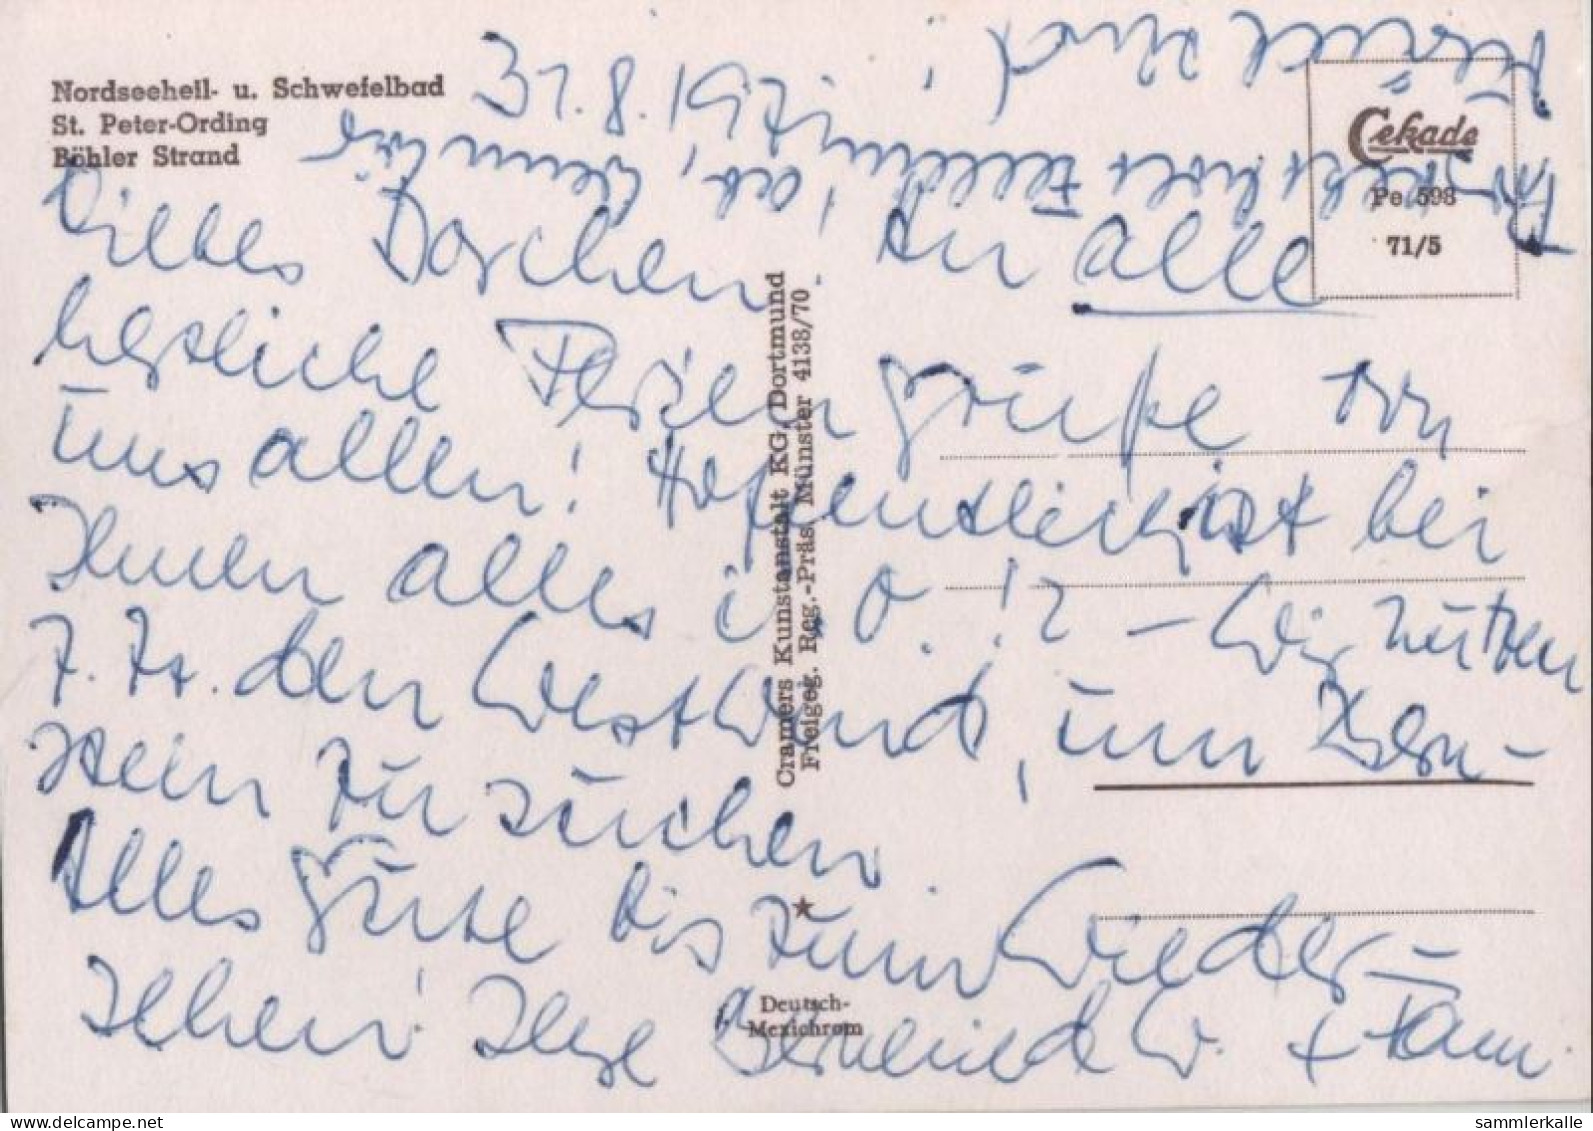 Nordseeheil- u. Schwefelbad
St. Peter-Ording
Böhler Strand
Cekade
Pe 598
71/5
Liebes Dorchen! An alle
herzliche Feriengrüße von
uns allen! Hoffentlich ist bei
Ihnen alles i. O.!? – Wir nutzen
z. Zt. den Westwind, um Bern-
stein zu suchen.
Alles Gute bis zum Wieder-
sehen! Ihre W. + Fam.
Cramers Kunstanstalt KG, Dortmund
Freigeg. Reg.-Präs. Münster 4138/70
Deutsch-
Mexichrom
wenn wir
zurück sind!
sammlerkalle
www.delcampe.net